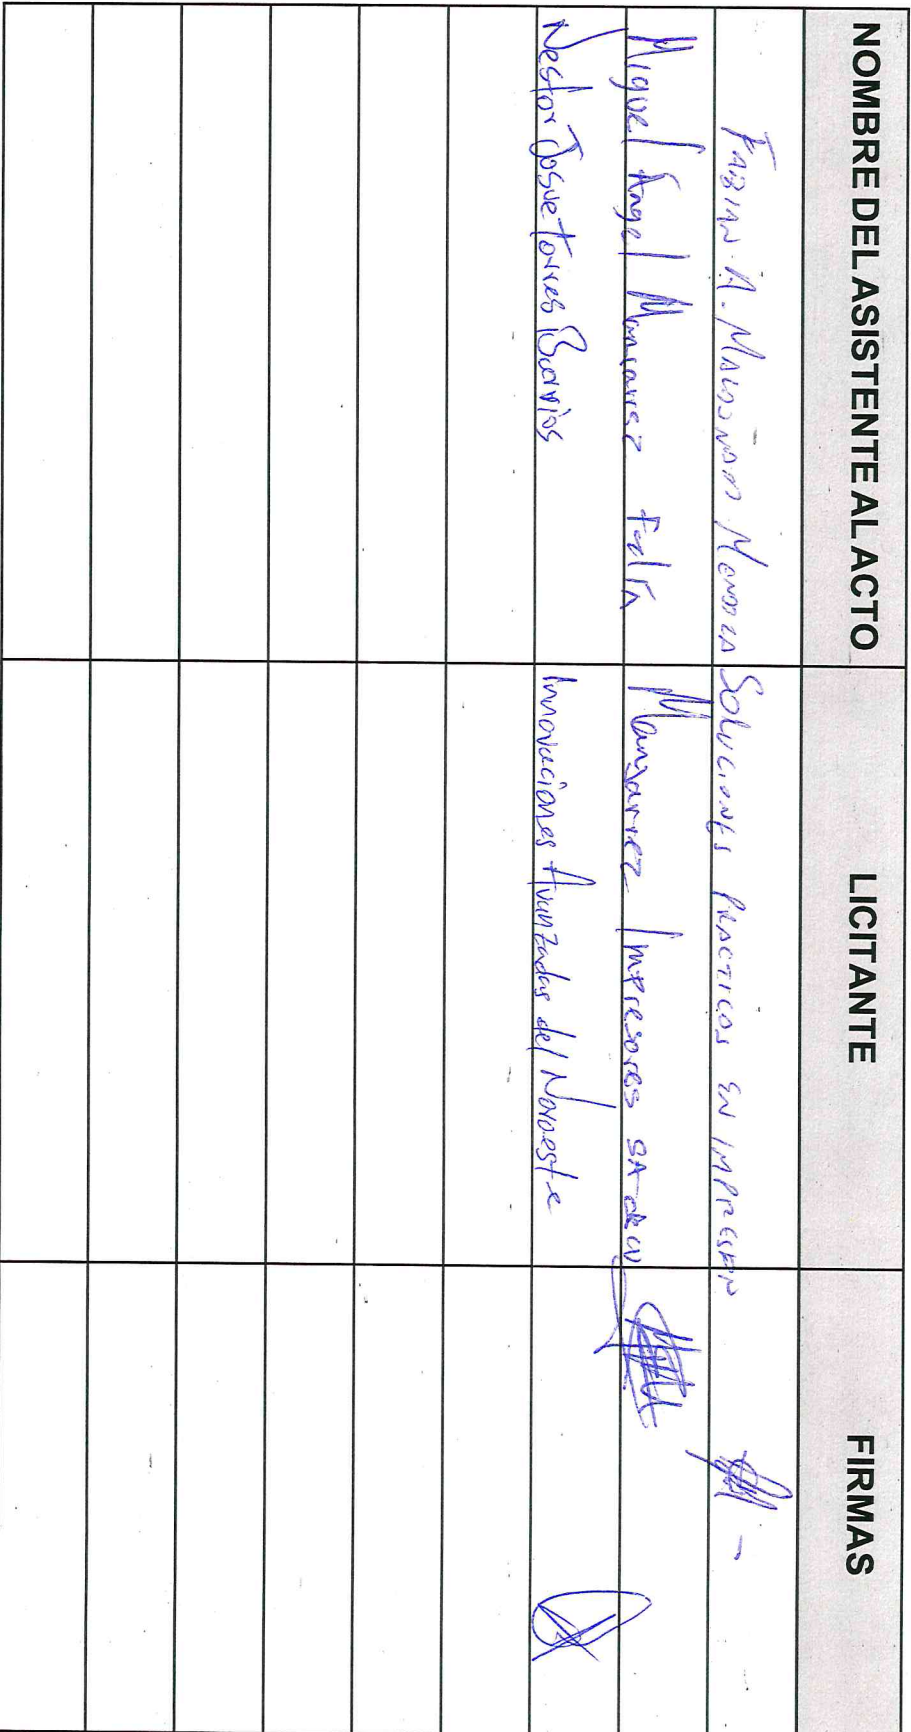 NOMBRE DEL ASISTENTE AL ACTO LICITANTE FIRMAS
FABIAN A. MALDONADO MENDOZA SOLUCIONES PRACTICAS EN IMPRESION
Miguel Angel Manjarrez Manjarrez Impresores SA de CV
Nestor Josue Torres Barrios Innovaciones Avanzadas del Noroeste